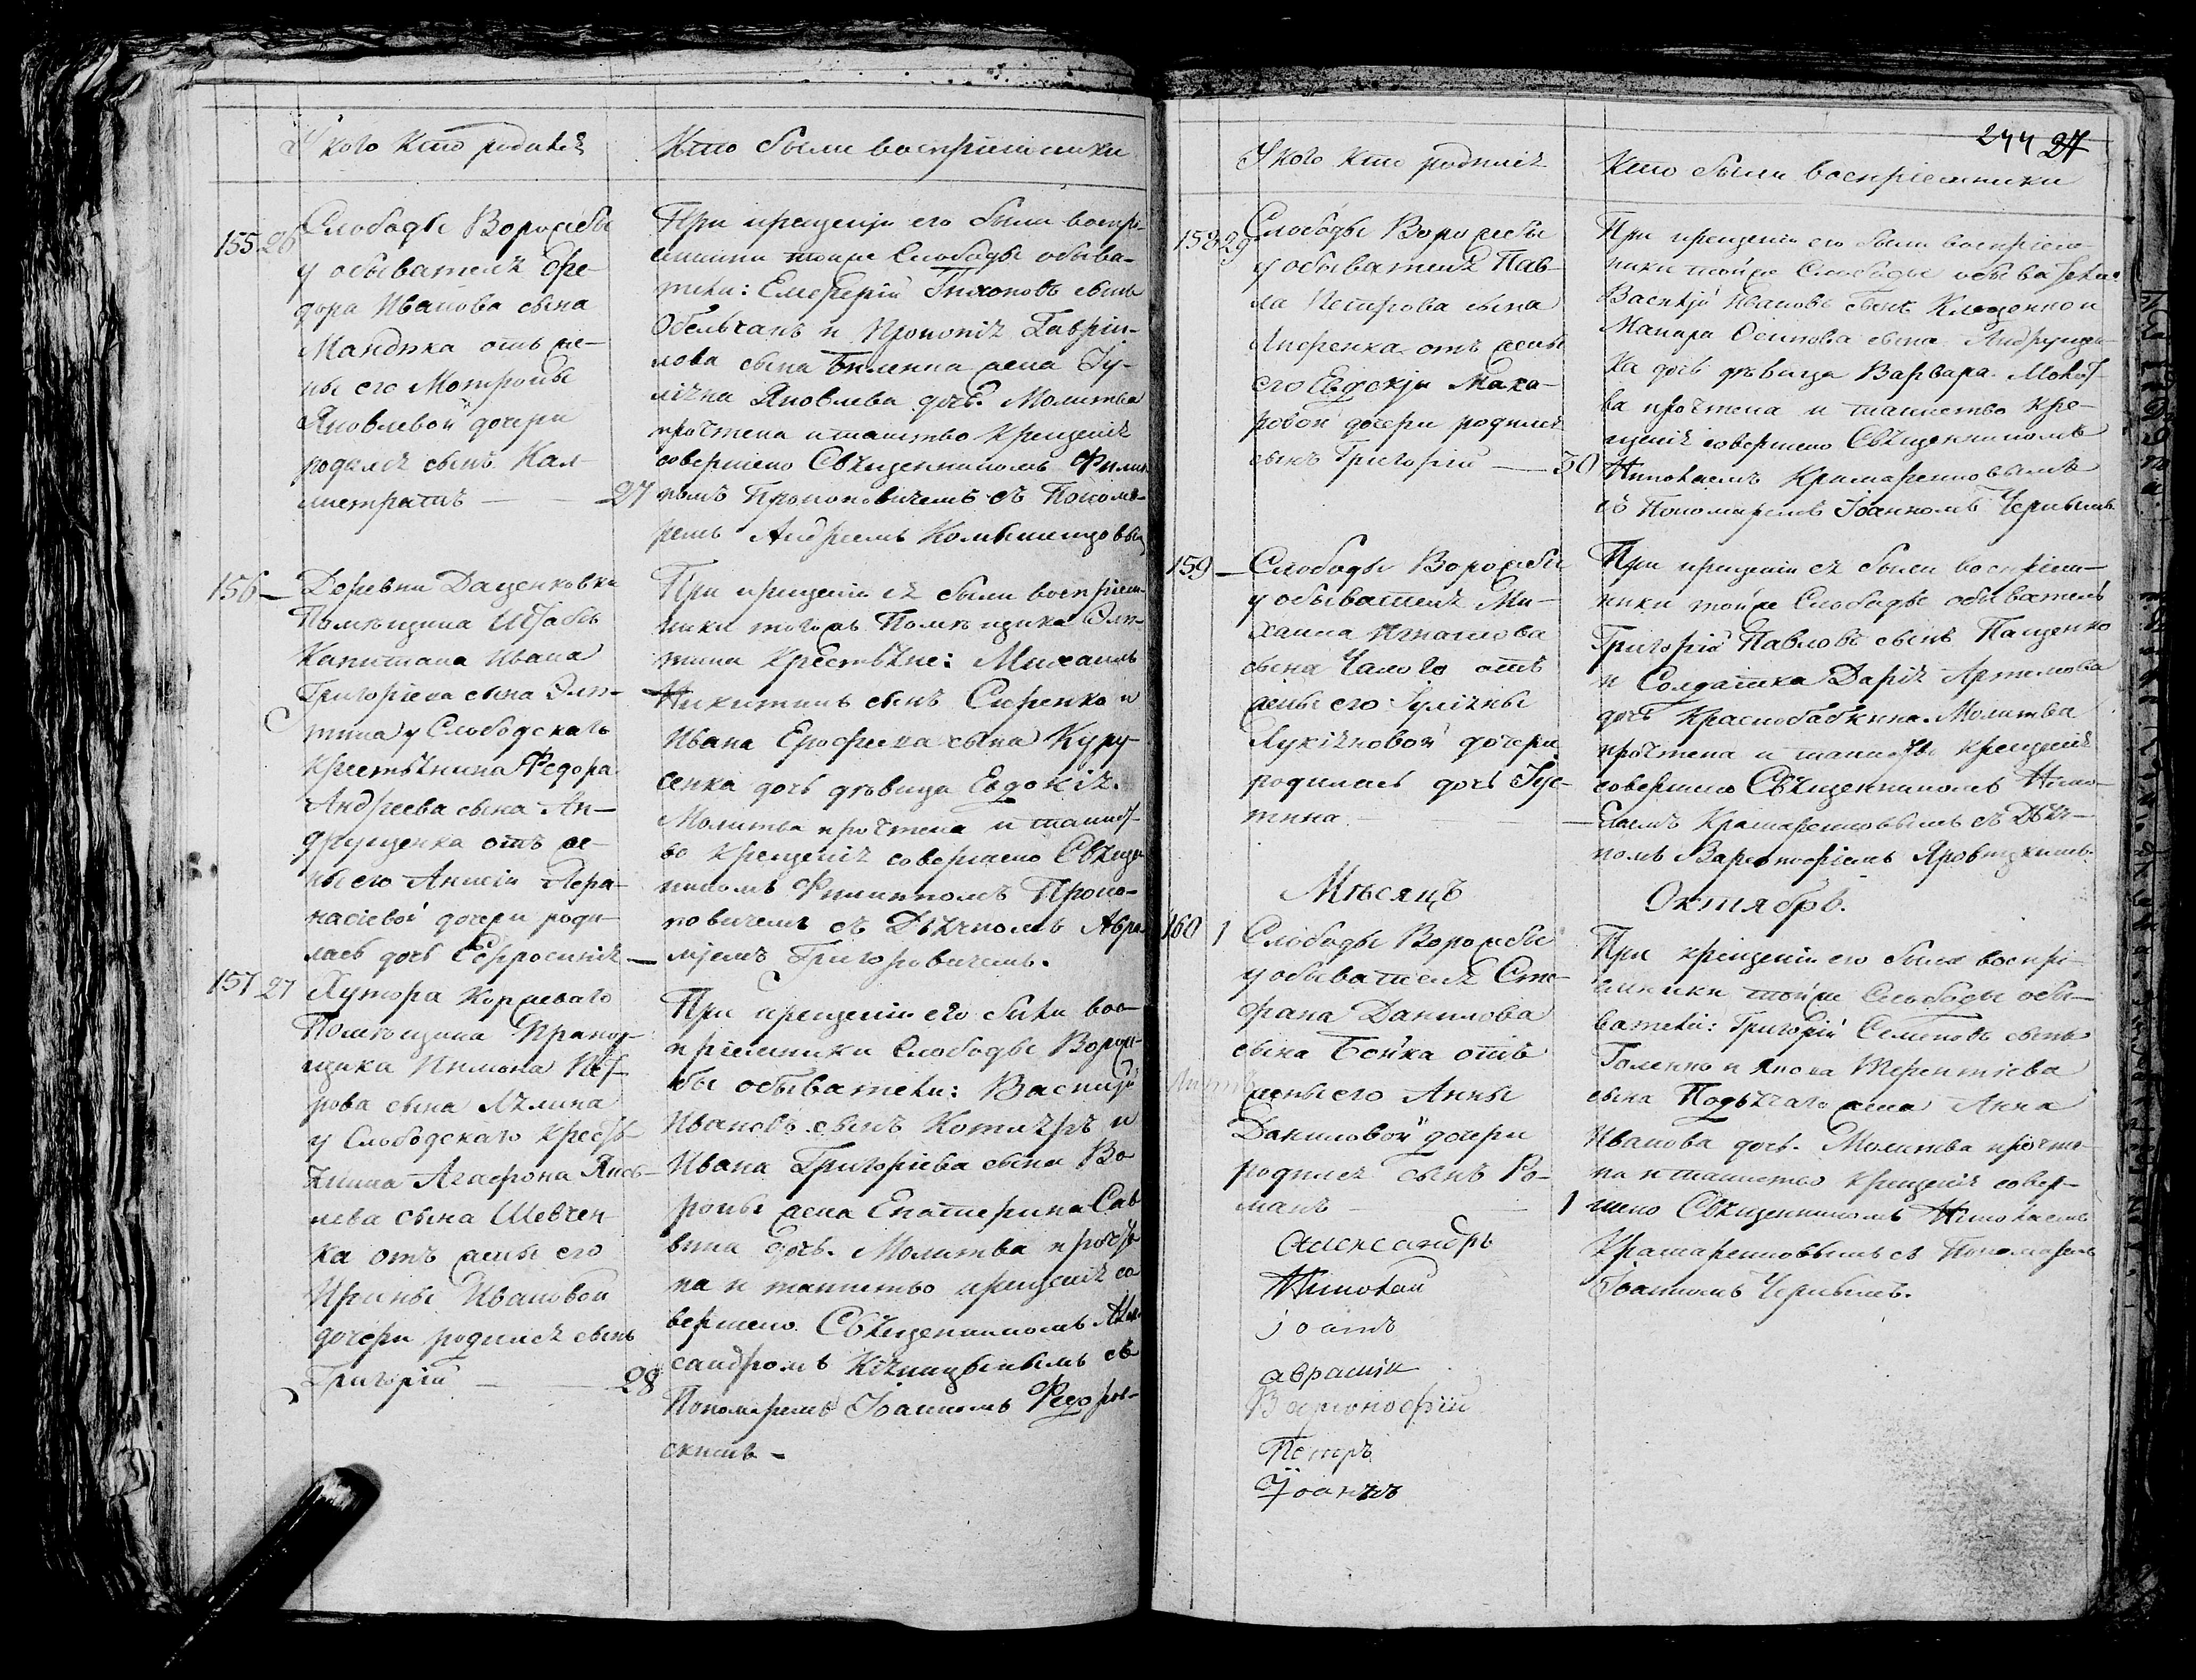 У кого кто родился
Кто были воспріемники
155 26
Слободы Ворожбы
у обывателя Фе-
дора Иванова сына
Мандика отъ же-
ны его Мотроны
Яковлевой дочери
родился сынъ Кал-
листратъ — 27
При крещеніи его были воспрі-
емники тойже Слободы обыва-
тели: Елеферій Тихоновъ сынъ
и Прокопія Гавріи-
лова сына Биленка жена Іу-
ліяна Яковлева дочь. Молитва
прочтена и таинство крещенія
совершено Священникомъ Филип-
помъ Прокоповичемъ съ Понома-
ремъ Андреемъ
156 —
Деревни Даценковки
Помѣщика Штабсъ
Капитана Ивана
Григоріева сына Олп-
тина у Слободскаго
крестьянина Федора
Андреева сына Ан-
друщенка отъ же-
ны его Анисіи Афа-
насіевой дочери роди-
лась дочь Ефросинія —
При крещеніи ея были воспріем-
ники тогожъ Помѣщика Олп-
тина Крестьяне: Михаилъ
Никитинъ сынъ Сиренко и
Ивана Ерофеева сына Куру-
сенка дочь дѣвица Евдокія.
Молитва прочтена и таинст-
во крещенія совершено Священ-
никомъ Филиппомъ Проко-
повичемъ съ Дьячкомъ Авра-
міемъ Григоровичемъ.
157 27
Хутора Коржеваго
Помѣщика Прапор-
щика Пимона Пет-
рова сына Лялина
у Слободскаго Кресть-
янина Агафона Яков-
лева сына Шевчен-
ка отъ жены его
Ирины Ивановой
дочери родился сынъ
Григорій — 28
При крещеніи его были вос-
пріемники Слободы Ворож-
бы обыватели: Василій
Ивановъ сынъ Котляръ и
Ивана Григоріева сына Во-
роны жена Екатерина Сав-
вина дочь. Молитва прочте-
на и таинство крещенія со-
вершено Священникомъ Алек-
сандромъ съ
Пономаремъ Іоанномъ Федоров-
скимъ —
244 27
У кого кто родился
Кто были воспріемники
158 29
Слободы Ворожбы
у обывателя Пав-
ла Петрова сына
Лисренка отъ жены
его Евдокіи Мака-
ровой дочери родился
сынъ Григорій — 30
При крещеніи его были воспріем-
ники тойже Слободы обыватели:
Василій Ивановъ сынъ Клещенко и
Макара Осипова сына Андрущен-
ка дочь дѣвица Варвара. Молит-
ва прочтена и таинство кре-
щенія совершено Священникомъ
Николаемъ Крамаренковымъ
съ Пономаремъ Іоанномъ Чернымъ.
159 —
Слободы Ворожбы
у обывателя Ми-
хаила Игнатова
сына Чалого отъ
жены его Іуліяны
Лукіяновой дочери
родилась дочь Іус-
тина —
При крещеніи ея были воспріем-
ники тойже Слободы обыватель
Григорій Павловъ сынъ Пащенко
и Солдатка Дарія Артемова
дочь Краснобабкина. Молитва
прочтена и таинство крещенія
совершено Священникомъ Нико-
лаемъ Крамаренковымъ съ Дьяч-
комъ Варфоноѳіемъ Яровицкимъ.
Мѣсяцъ
Октябрь.
160 1
Слободы Ворожбы
у обывателя Сте-
фана Данилова
сына Бойка отъ
жены его Анны
Даниловой дочери
родился сынъ Ро-
манъ — 1
При крещеніи его были воспрі-
емники тойже Слободы обы-
ватели: Григорій Семеновъ сынъ
Голенко и Якова Терентіева
сына Подьячаго жена Анна
Иванова дочь. Молитва прочте-
на и таинство крещенія совер-
шено Священникомъ Николаемъ
Крамаренковымъ съ Пономаремъ
Іоанномъ Чернымъ.
Александръ
Николай
іоанъ
аврамій
Варфоноѳій
Петръ
Іоаннъ